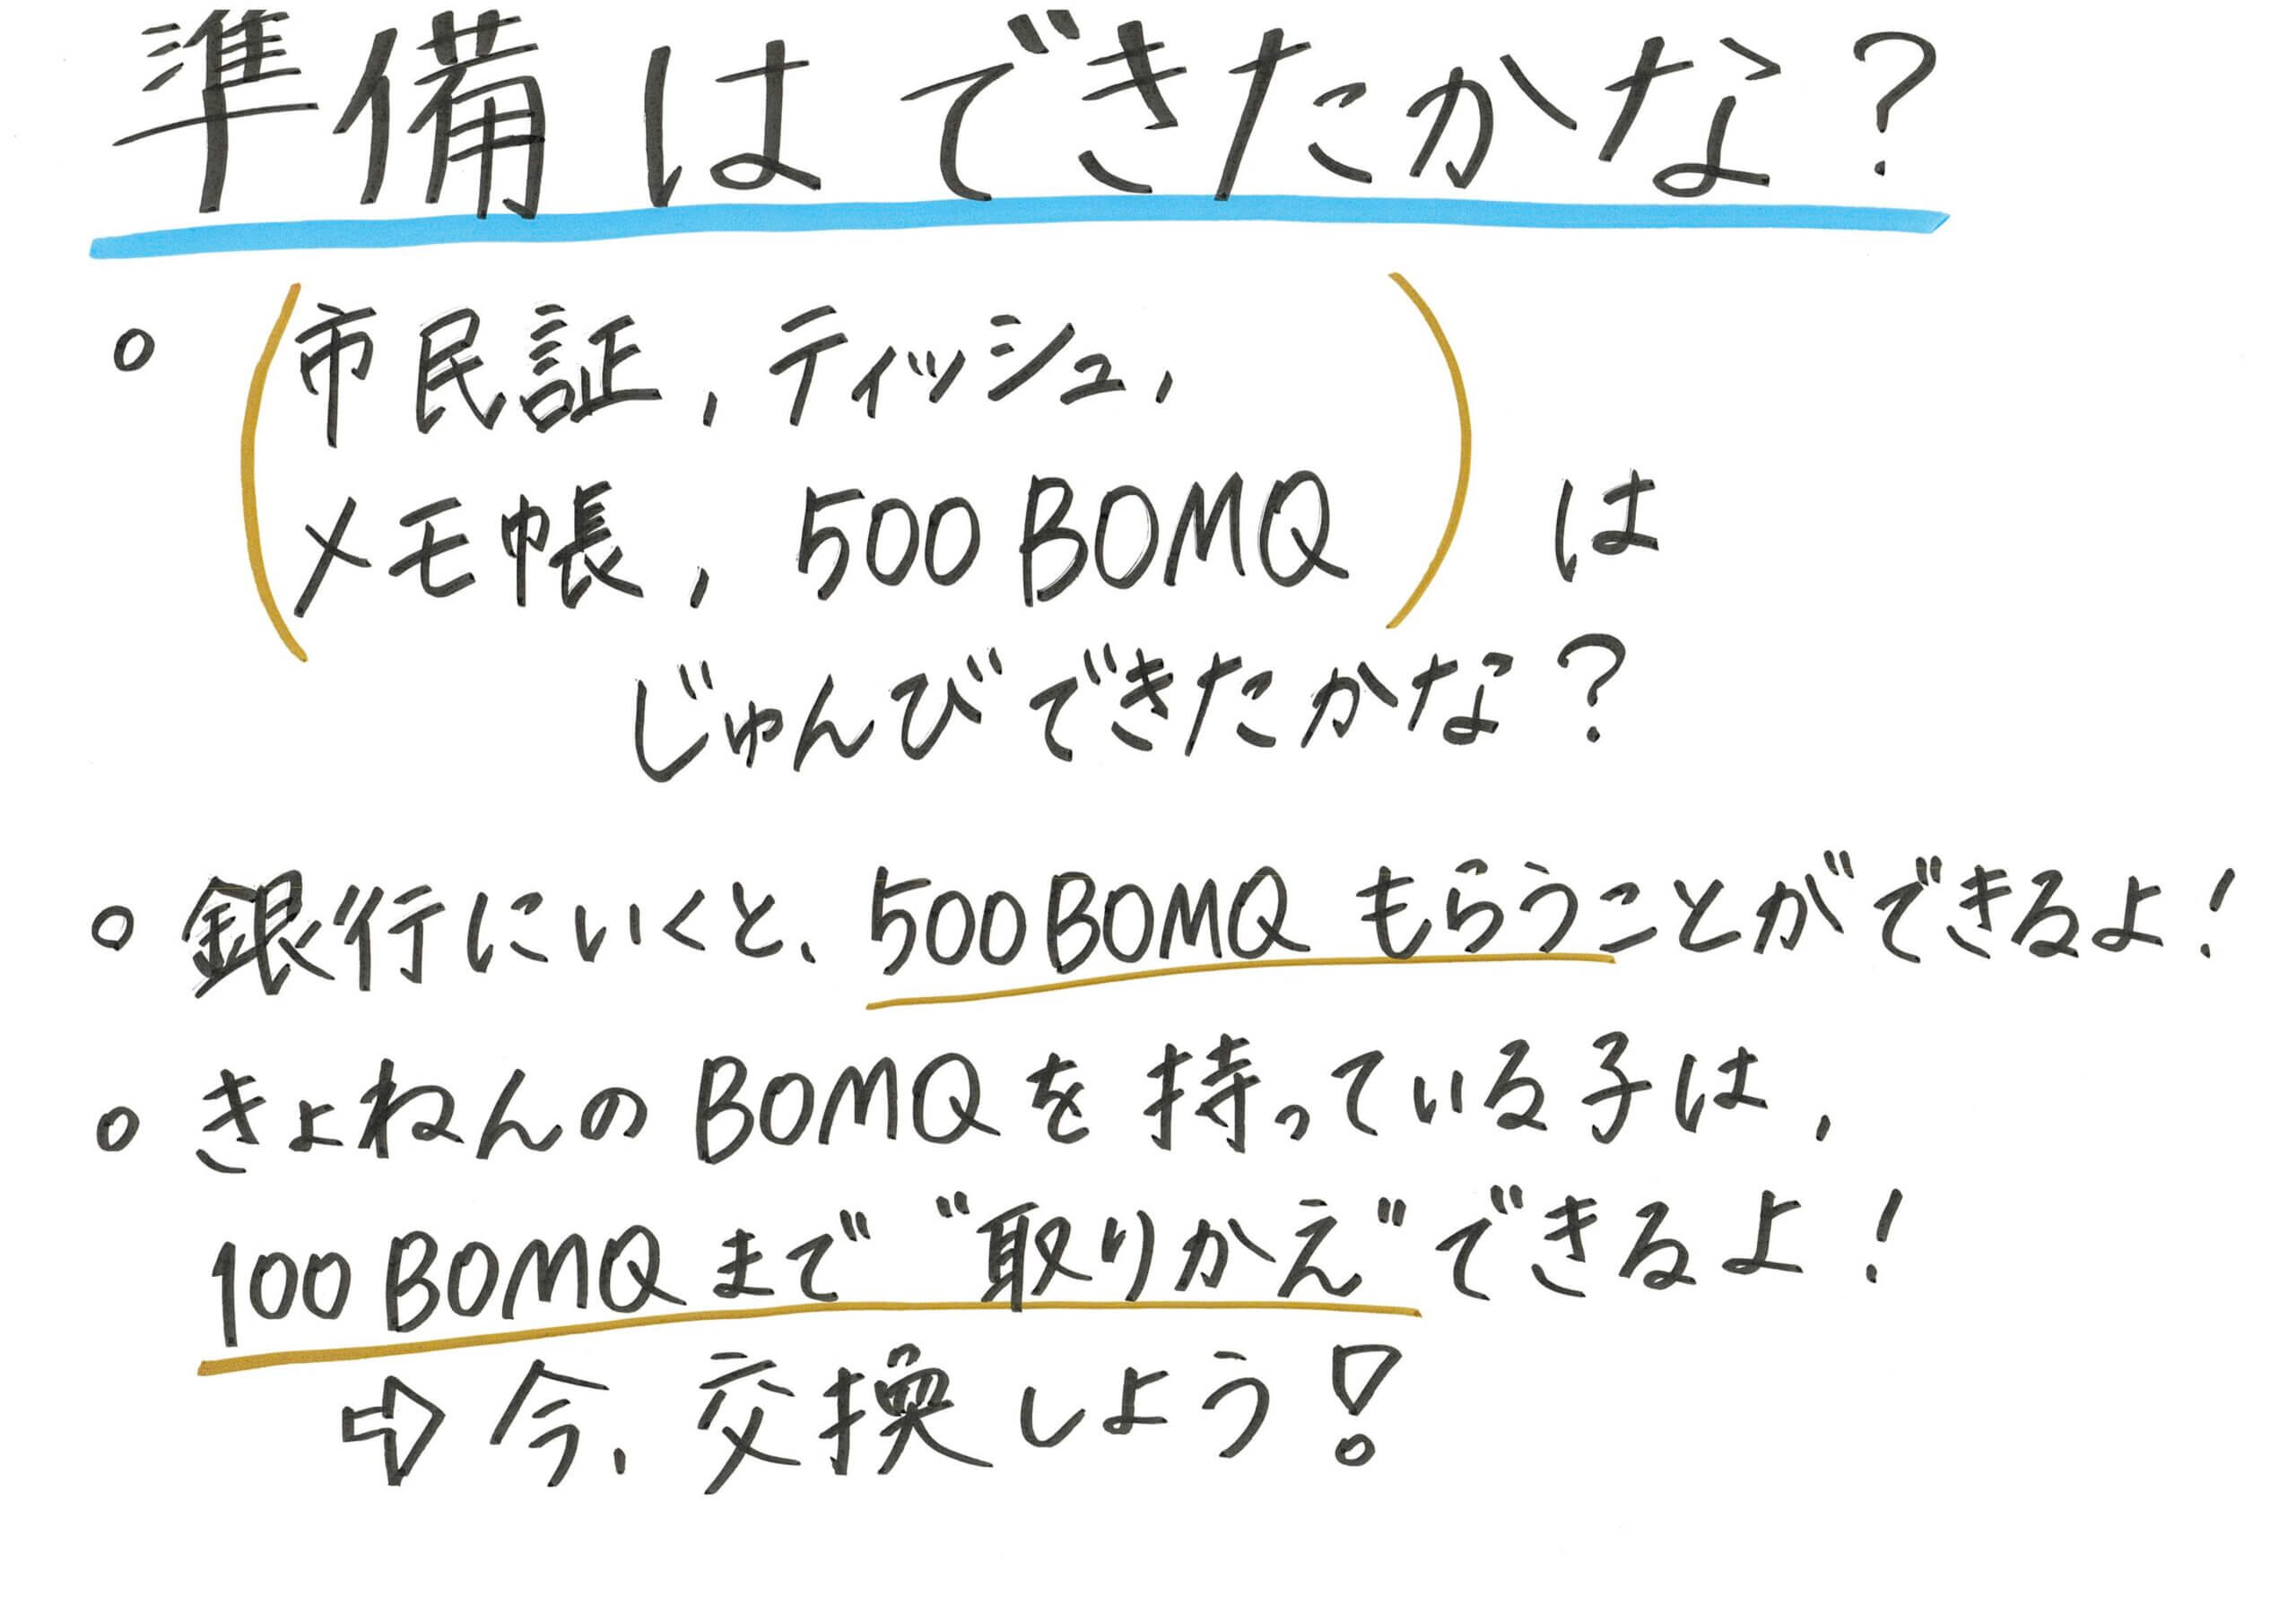 準備はできたかな?
○ (市民証, ティッシュ,
メモ帳, 500BOMQ) は
じゅんびできたかな?
○ 銀行にいくと、500BOMQ もらうことができるよ!
○ きょねんの BOMQ を持っている子は,
100BOMQまで "取りかえ" できるよ!
⇨ 今、交換しよう!